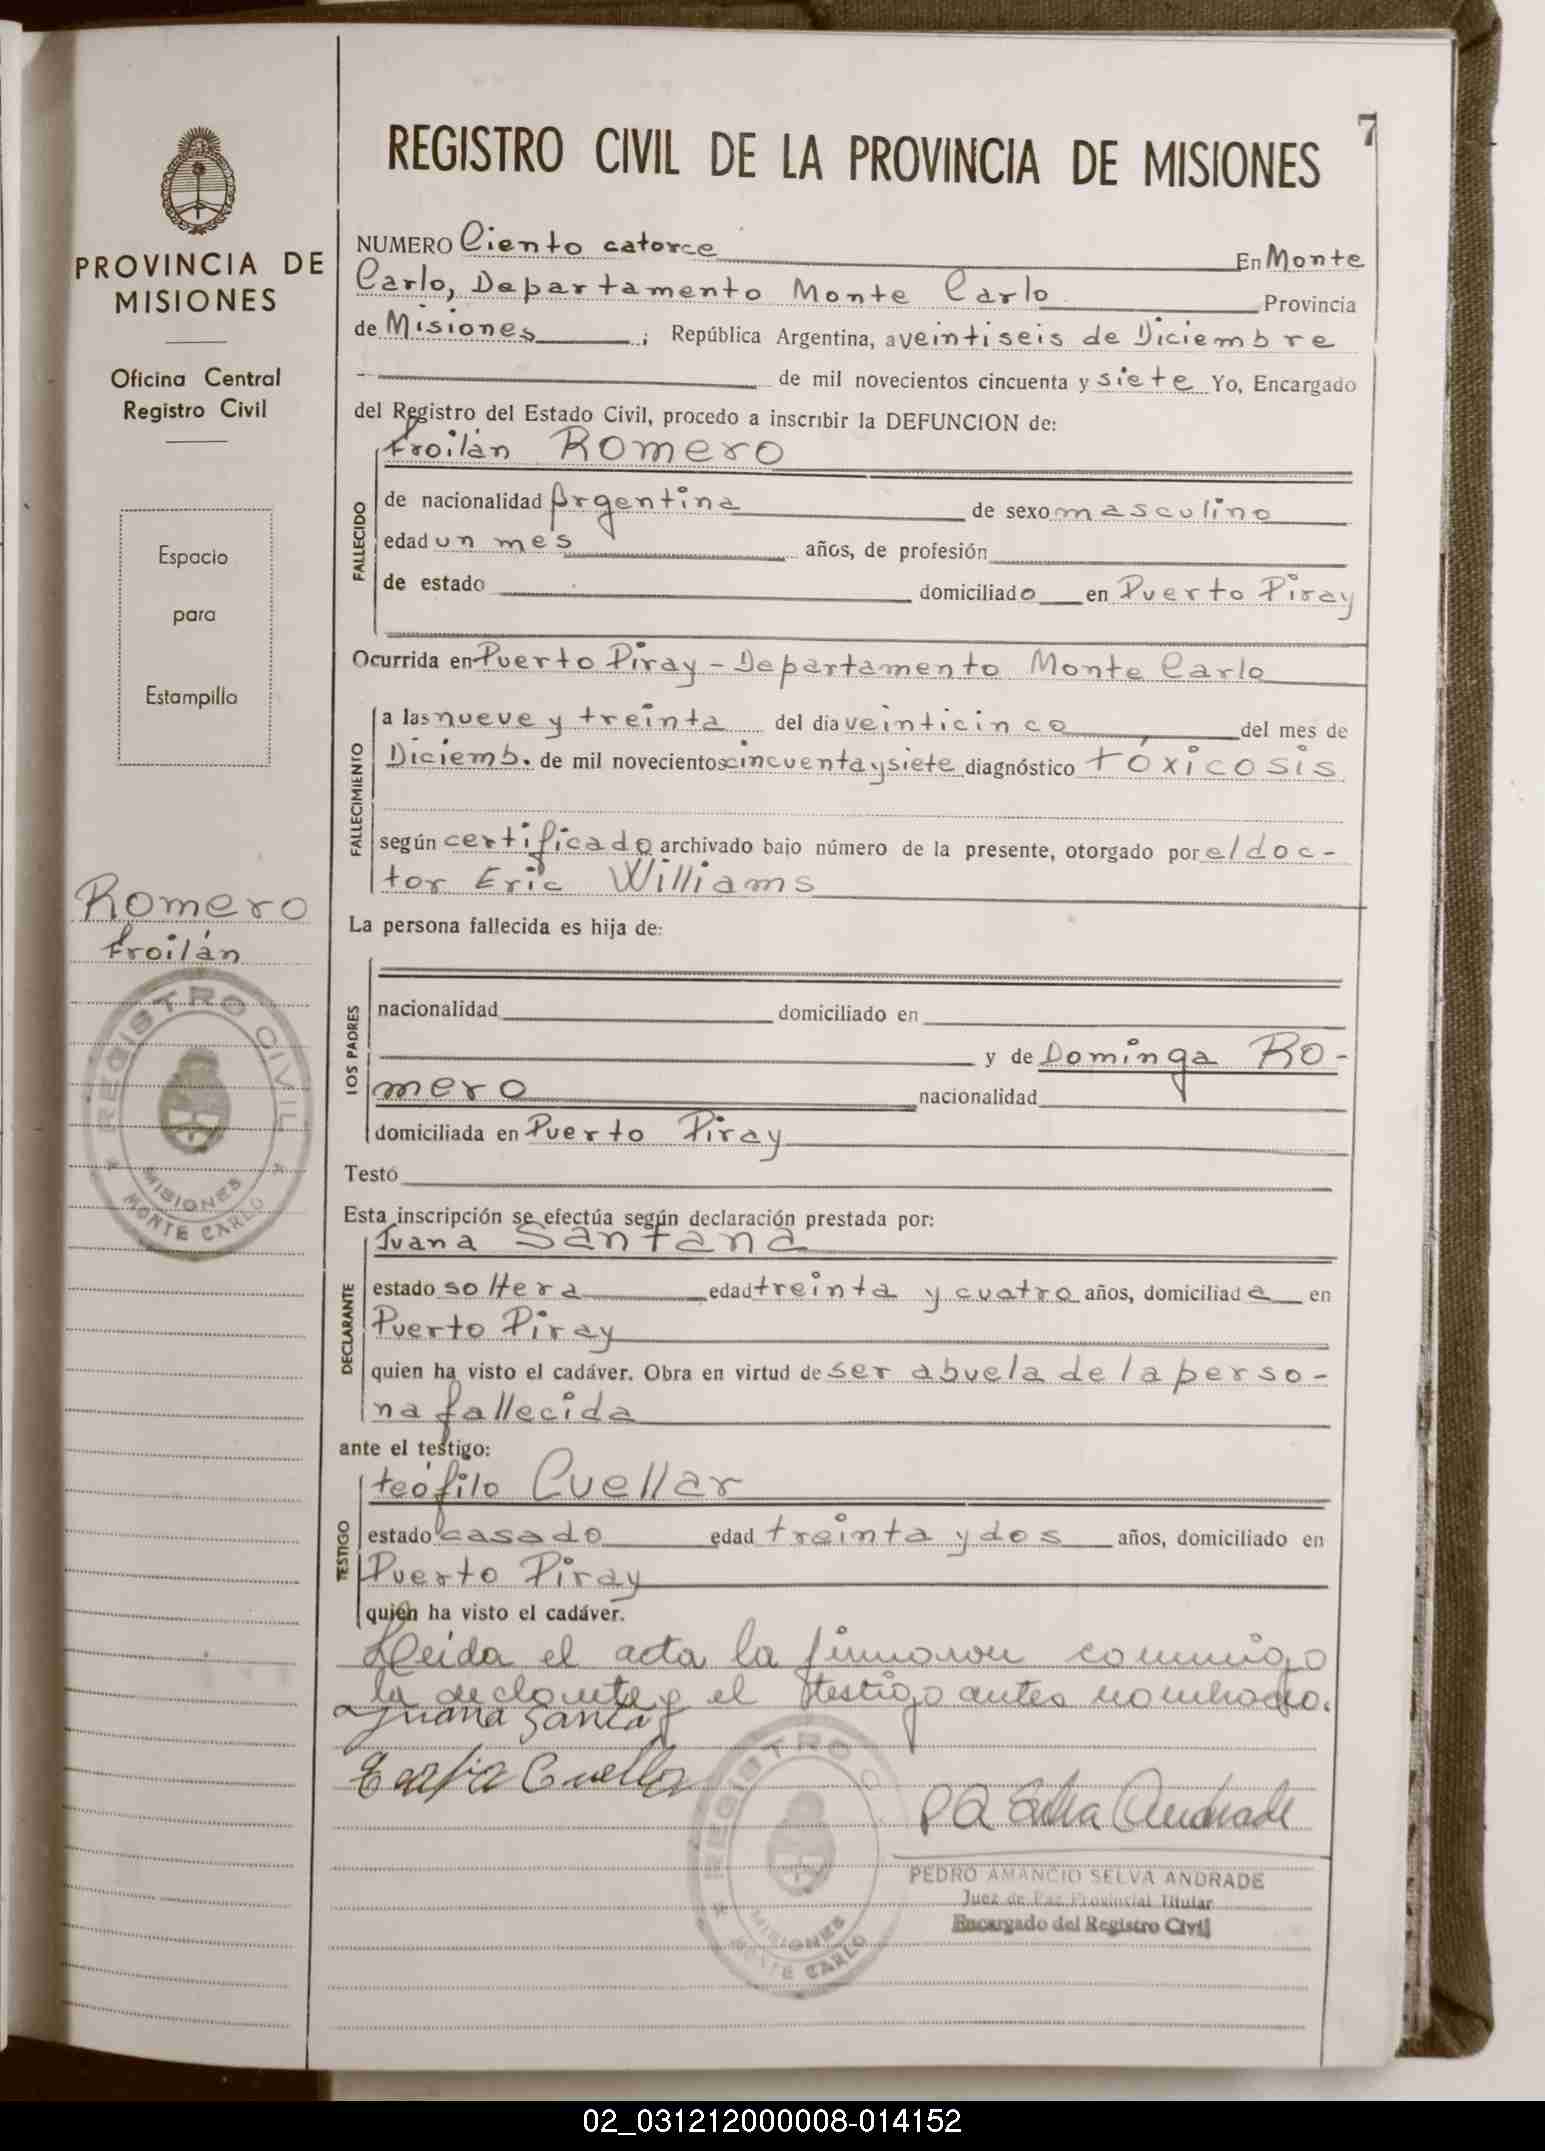 7
REGISTRO CIVIL DE LA PROVINCIA DE MISIONES
PROVINCIA DE
MISIONES
Oficina Central
Registro Civil
Espacio
para
Estampilla
Romero
Froilán
REGISTRO CIVIL
MISIONES
MONTE CARLO
NUMERO Ciento catorce En Monte
Carlo, Departamento Monte Carlo Provincia
de Misiones ; República Argentina, a veintiseis de Diciembre
de mil novecientos cincuenta y siete Yo, Encargado
del Registro del Estado Civil, procedo a inscribir la DEFUNCION de:
Froilán Romero
FALLECIDO
de nacionalidad Argentina de sexo masculino
edad un mes años, de profesión
de estado domiciliado en Puerto Piray
Ocurrida en Puerto Piray - Departamento Monte Carlo
FALLECIMIENTO
a las nueve y treinta del dia veinticinco del mes de
Diciemb. de mil novecientos cincuenta y siete diagnóstico tóxicosis
según certificado archivado bajo número de la presente, otorgado por el doc-
tor Eric Williams
La persona fallecida es hija de:
LOS PADRES
nacionalidad domiciliado en
y de Dominga Ro-
mero nacionalidad
domiciliada en Puerto Piray
Testó
Esta inscripción se efectúa según declaración prestada por:
Juana Santana
DECLARANTE
estado soltera edad treinta y cuatro años, domiciliada en
Puerto Piray
quien ha visto el cadáver. Obra en virtud de ser abuela de la perso-
na fallecida
ante el testigo:
teófilo Cuellar
TESTIGO
estado casado edad treinta y dos años, domiciliado en
Puerto Piray
quien ha visto el cadáver.
Leida el acta la firmaron conmigo
la declarante y el testigo antes nombrado.
Juana Santa
Cuellar
P A Selva Andrade
REGISTRO
MISIONES
MONTE CARLO
PEDRO AMANCIO SELVA ANDRADE
Juez de Paz Provincial Titular
Encargado del Registro Civil
02_031212000008-014152